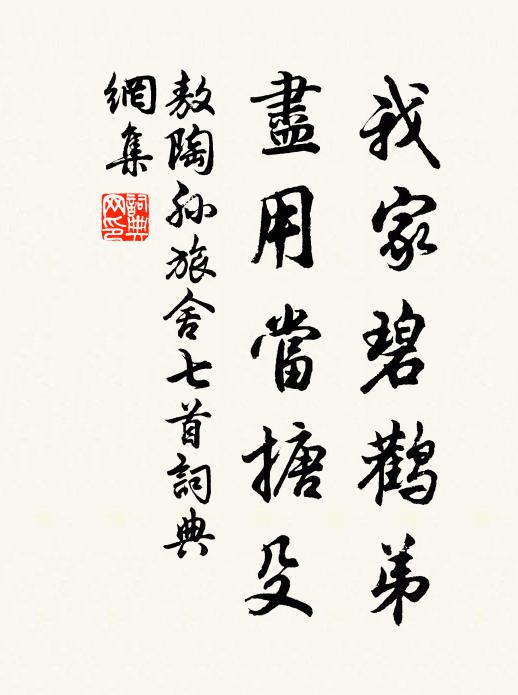 我家碧鹳弟
盡用當搪殳
敖陶孙旅舍七首詞典
網集
詞典
网印